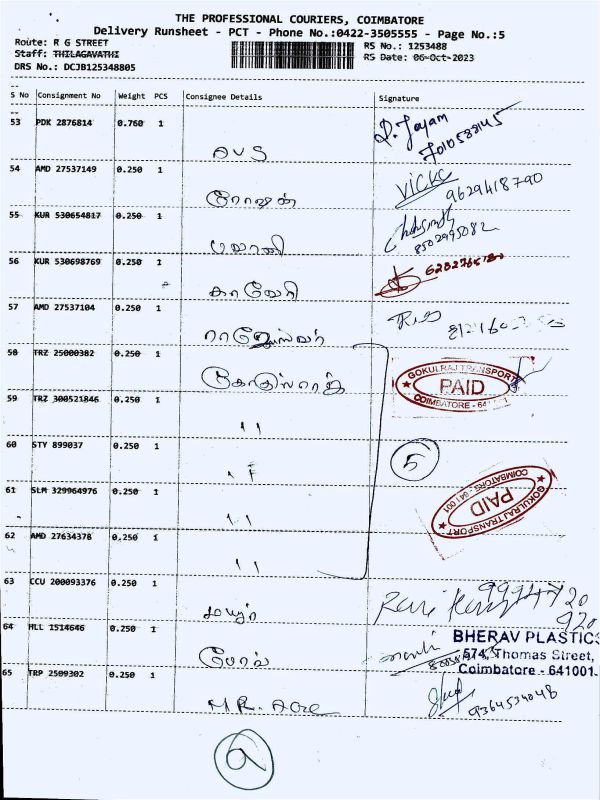 THE PROFESSIONAL COURIERS, COIMBATORE
Delivery Runsheet - PCT - Phone No.:0422-3505555 - Page No.:5
Route: R G STREET
RS No.: 1253488
Staff: THILAGAVATHI
RS Date: 06-Oct-2023
DRS No.: DCJB125348805
S No Consignment No Weight PCS Consignee Details Signature
53 PDK 2876814 0.760 1
AVS
54 AMD 27537149 0.250 1
ரோஷன்
VICKC 9629418790
55 KUR 530654817 0.250 1
பவானி
8502995082
56 KUR 530698769 0.250 1
காவேரி
57 AMD 27537104 0.250 1
58 TRZ 25000382 0.250 1
GOKULRAJ TRANSPORT
PAID
COIMBATORE - 641 001
59 TRZ 300521846 0.250 1
''
60 STY 899037 0.250 1
''
5
61 SLM 329964976 0.250 1
''
GOKULRAJ TRANSPORT
PAID
COIMBATORE - 641 001
62 AMD 27634378 0.250 1
''
63 CCU 200093376 0.250 1
64 HLL 1514646 0.250 1
BHERAV PLASTICS
574, Thomas Street,
Coimbatore - 641001.
65 TRP 2509302 0.250 1
9364534048